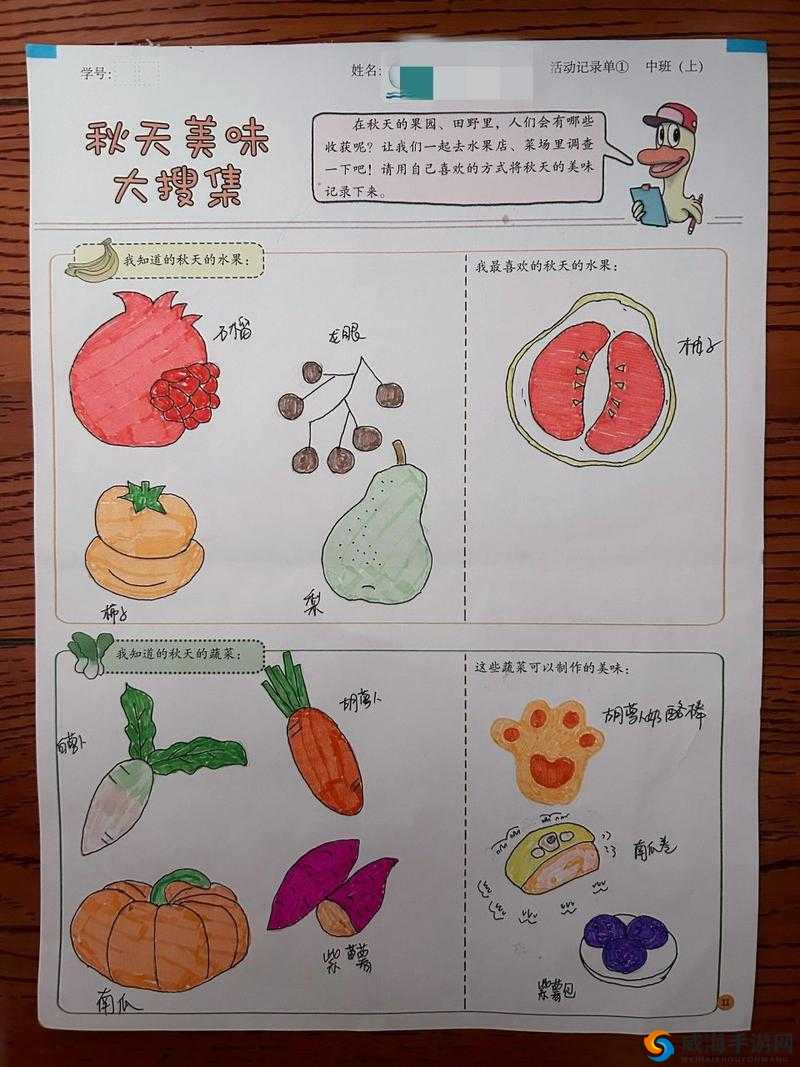 学号:
姓名:
活动记录单① 中班（上）
秋天美味
大搜集
在秋天的果园、田野里，人们会有哪些
收获呢？让我们一起去水果店、菜场里调查
一下吧！请用自己喜欢的方式将秋天的美味
记录下来。
我知道的秋天的水果：
我最喜欢的秋天的水果：
石榴
龙眼
柚子
柿子
梨
我知道的秋天的蔬菜：
这些蔬菜可以制作的美味：
白萝卜
胡萝卜
胡萝卜奶酪棒
南瓜卷
紫薯
南瓜
紫薯包
11
威海手游网
WEIHAISHOUYOUWANG